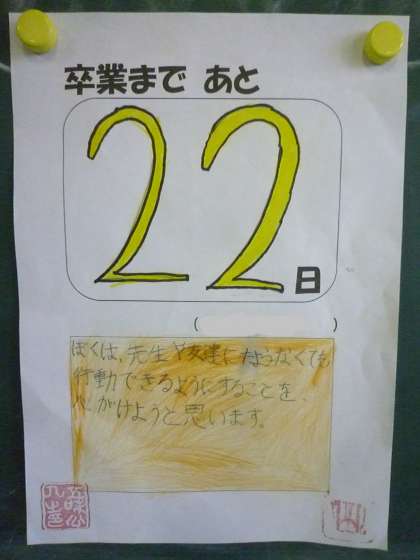 卒業まで あと
22日
( )
ぼくは、先生や友達にたよらなくても
行動できるようにすることを、
心がけようと思います。